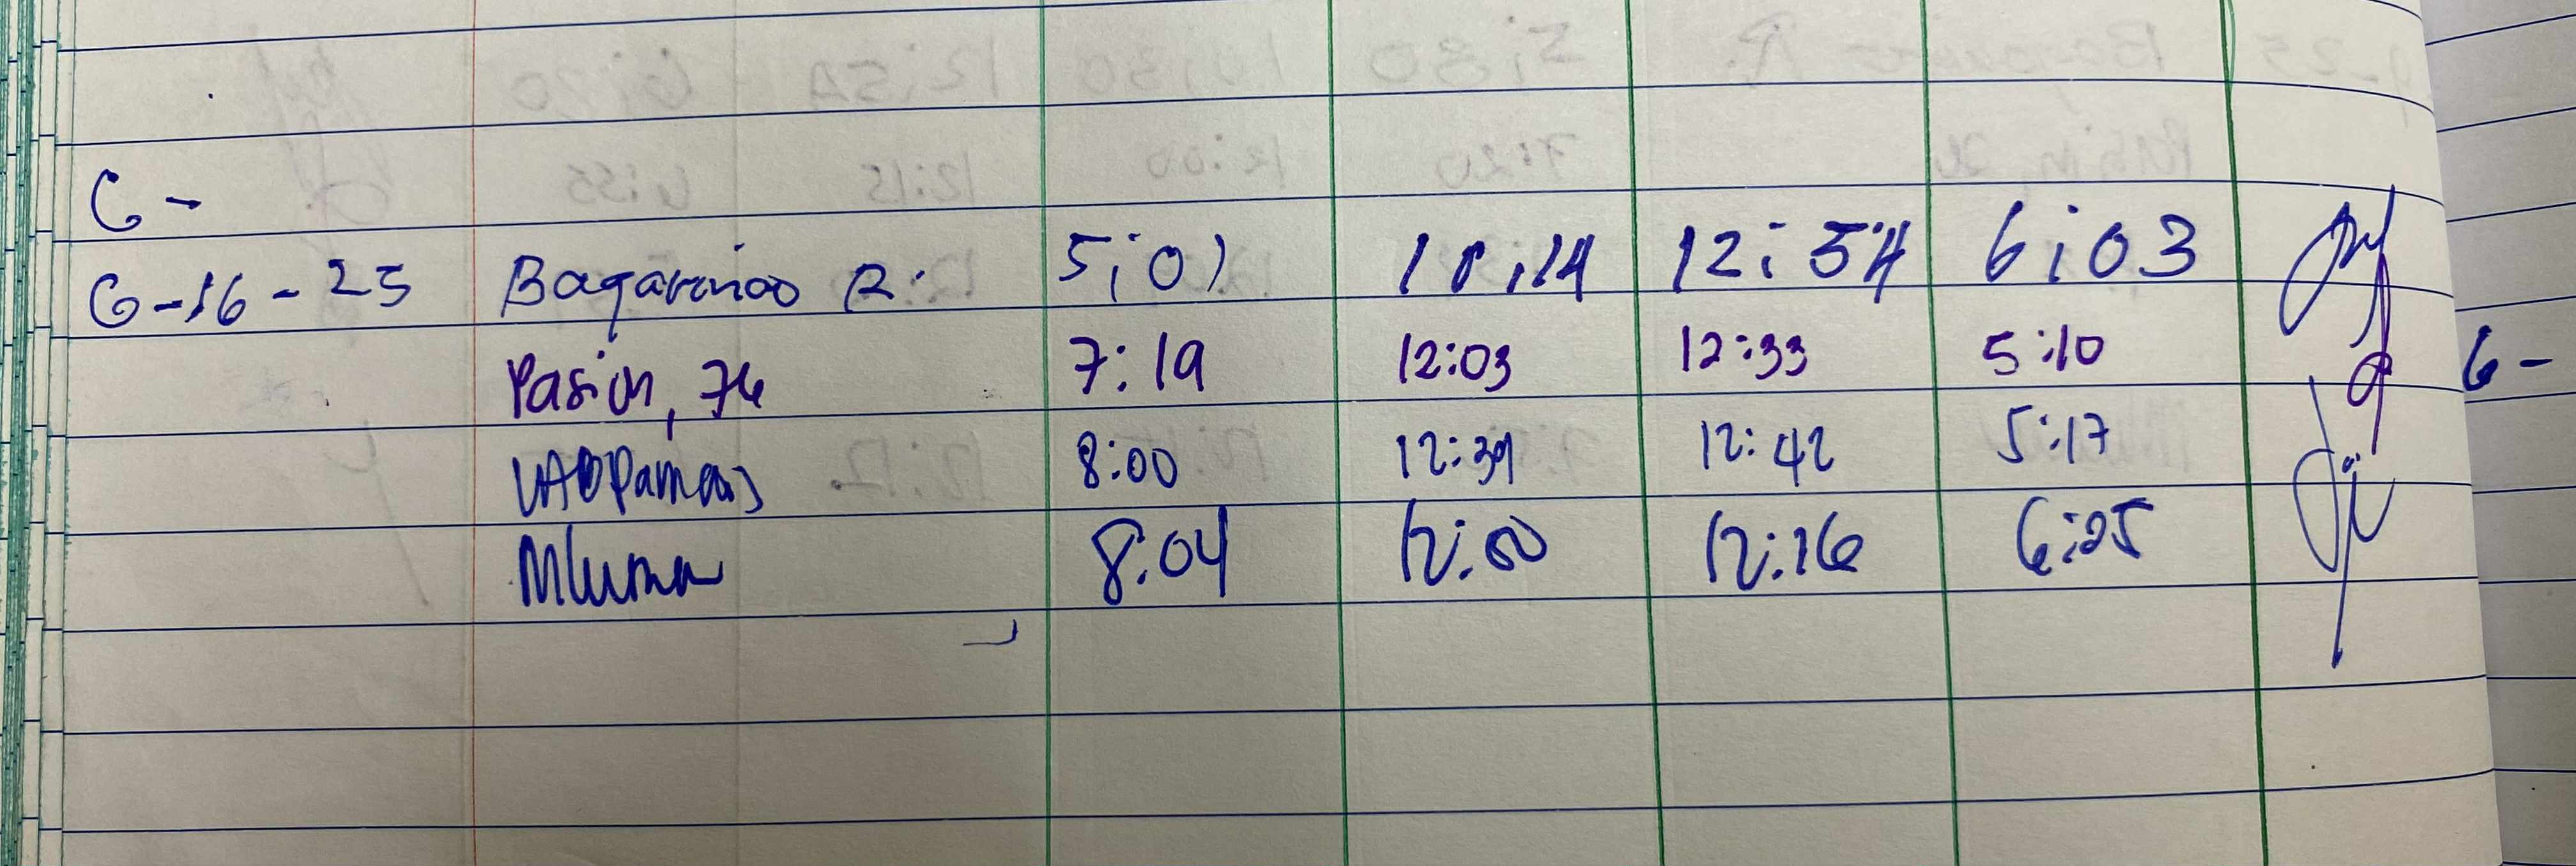 6 -
6-16-25 Bagarinao R. 5:01 12:54 6:03
Pasion, 7:19 12:03 12:33 5:10
8:00 12:39 12:42 5:17
8:04 12:00 12:16 6:25
6 -